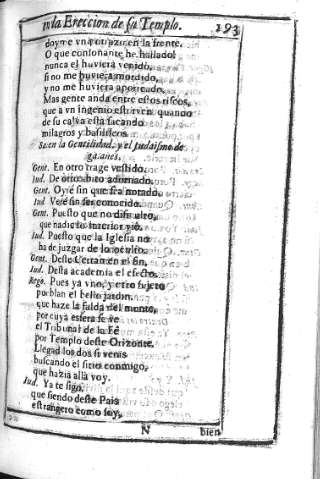 en la Ereccion de su Templo. 193
doyme vn in la frente.
O que consonante he hallado!
nunca el huviera venido,
si no me huviera mordido,
y no me huviera aporreado.
Mas gente anda entre estos riscos,
que a vn ingenio estarven quando
de su calva está sacando
milagros y basiliscos.
Salen la Gentilidad, y el Judaismo de
galanes.
Gent. En otro trage vestido,
Iud. De otro adornado,
Gent. Oyré sin que sea notado,
Iud Veré sin ser conocido.
Gent. Puesto que no
que nadie su interior vió.
Iud. Puesto que la Iglesia no
ha de juzgar de lo oculto.
Gent. Deste Certamen el fin,
Iud. Desta academia el efecto.
Rego. Pues ya vno, y otro sujeto
pueblan el bello jardin,
que haze la falda del monte,
por cuya esfera se ve
el Tribunal de la Fé
por Templo deste Orizonte.
Llegad los dos si venis
buscando el sitio conmigo,
que hazia allá voy.
Iud. Ya te sigo,
que siendo deste Pais
estrangero como soy,
N bien